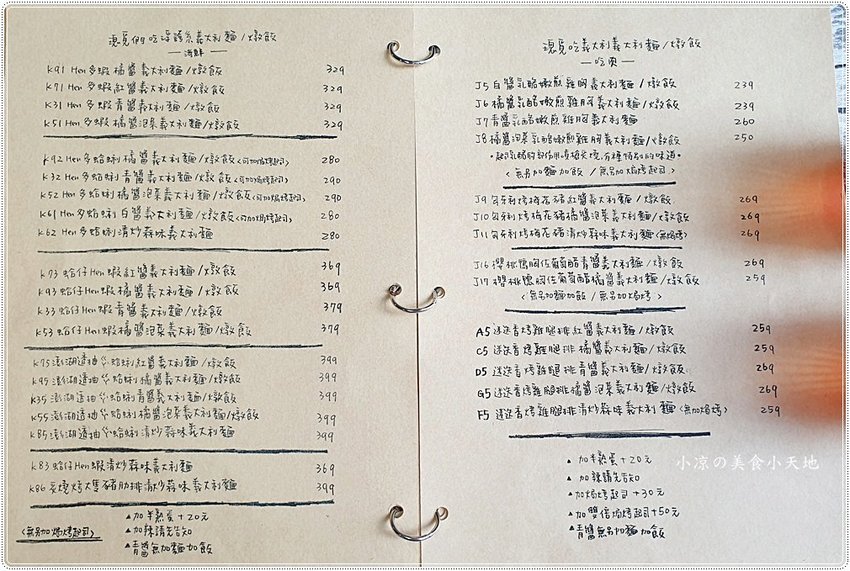 海鮮
K91 Hen多蝦橘醬義大利麵/燉飯 329
K71 Hen多蝦紅醬義大利麵/燉飯 329
K31 Hen多蝦青醬義大利麵/燉飯 329
K51 Hen多蝦橘醬泡菜義大利麵/燉飯 329
K92 Hen多蛤蜊橘醬義大利麵/燉飯(可加焗烤起司) 280
K32 Hen多蛤蜊青醬義大利麵/燉飯(可加焗烤起司) 290
K52 Hen多蛤蜊橘醬泡菜義大利麵/燉飯(可加焗烤起司) 290
K61 Hen多蛤蜊白醬義大利麵/燉飯(可加焗烤起司) 280
K62 Hen多蛤蜊清炒蒜味義大利麵 280
K73 蛤仔Hen蝦紅醬義大利麵/燉飯 369
K93 蛤仔Hen蝦橘醬義大利麵/燉飯 369
K33 蛤仔Hen蝦青醬義大利麵/燉飯 379
K53 蛤仔Hen蝦橘醬泡菜義大利麵/燉飯 379
K75 澎湖透抽&蛤蜊紅醬義大利麵/燉飯 399
K95 澎湖透抽&蛤蜊橘醬義大利麵/燉飯 399
K35 澎湖透抽&蛤蜊青醬義大利麵/燉飯 399
K55 澎湖透抽&蛤蜊橘醬泡菜義大利麵/燉飯 399
K85 澎湖透抽&蛤蜊清炒蒜味義大利麵 399
K83 蛤仔Hen蝦清炒蒜味義大利麵 369
K86 炙燒烤大隻豬肋排清炒蒜味義大利麵 399
▲加半熟蛋+20元
▲加辣請先告知
<無另加焗烤起司>
▲青醬無加麵加飯
吃義大利義大利麵/燉飯
J5 白醬乳酪嫩煎雞胸義大利麵/燉飯 239
J6 橘醬乳酪嫩煎雞胸義大利麵/燉飯 239
J7 青醬乳酪嫩煎雞胸義大利麵 260
J8 橘醬泡菜乳酪嫩煎雞胸義大利麵/燉飯 250
<無另加麵加飯/無另加焗烤起司>
J9 匈牙利烤梅花豬紅醬義大利麵/燉飯 269
J10 匈牙利烤梅花豬橘醬泡菜義大利麵/燉飯 269
J11 匈牙利烤梅花豬清炒蒜味義大利麵(無焗烤) 269
J16 櫻桃鴨胸佐葡萄醋青醬義大利麵/燉飯 269
J17 櫻桃鴨胸佐葡萄醋橘醬義大利麵/燉飯 259
<無另加麵加飯/無另加焗烤>
A5 迷迭香烤雞腿排紅醬義大利麵/燉飯 259
C5 迷迭香烤雞腿排橘醬義大利麵/燉飯 259
D5 迷迭香烤雞腿排青醬義大利麵/燉飯 269
G5 迷迭香烤雞腿排橘醬泡菜義大利麵/燉飯 269
F5 迷迭香烤雞腿排清炒蒜味義大利麵(無加焗烤) 259
▲加半熟蛋+20元
▲加辣請先告知
▲加焗烤起司+30元
▲加雙倍焗烤起司+50元
▲青醬無另加麵加飯
小凉の美食小天地